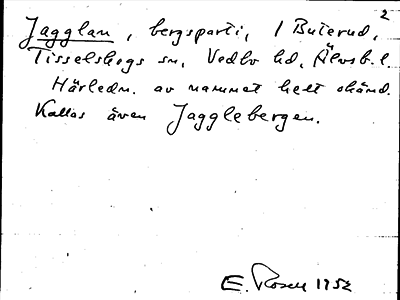 2
Jagglan, bergsparti, i Buterud,
Tisselskogs sn, Vedbo hd, Älvsb. l.
Härledn. av namnet helt okänd.
Kallas även Jagglebergen.
E. Rosell 1952